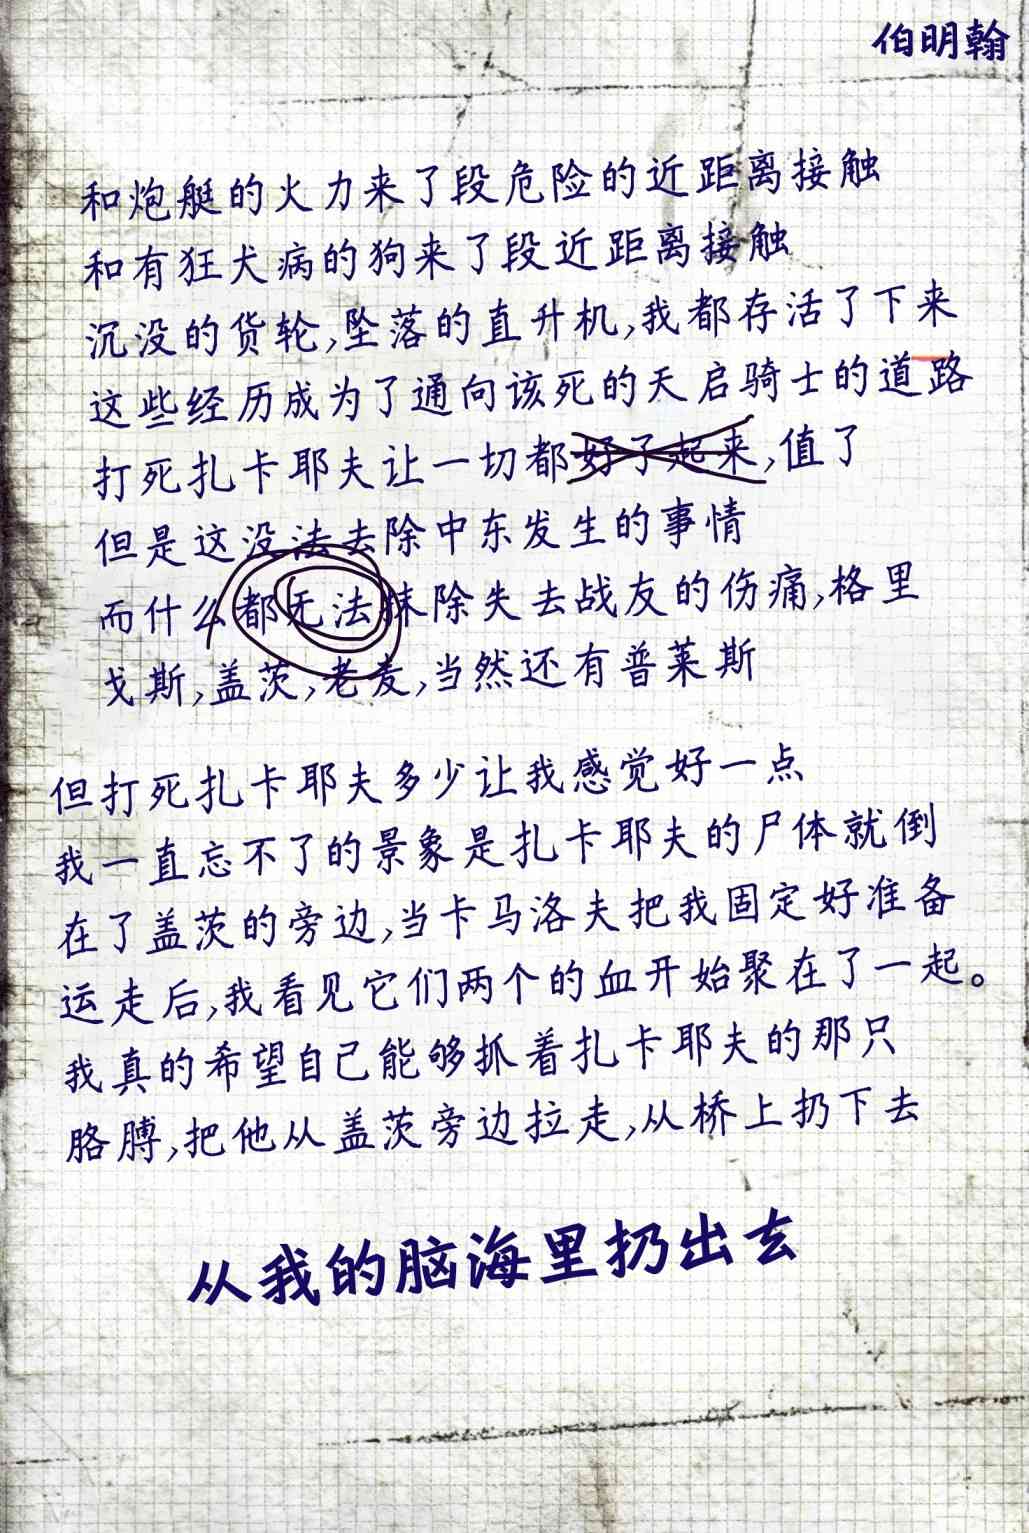 伯明翰
和炮艇的火力来了段危险的近距离接触
和有狂犬病的狗来了段近距离接触
沉没的货轮,坠落的直升机,我都存活了下来
这些经历成为了通向该死的天启骑士的道路
打死扎卡耶夫让一切都好了起来,值了
但是这没法去除中东发生的事情
而什么都无法抹除失去战友的伤痛,格里
戈斯,盖茨,老麦,当然还有普莱斯
但打死扎卡耶夫多少让我感觉好一点
我一直忘不了的景象是扎卡耶夫的尸体就倒
在了盖茨的旁边,当卡马洛夫把我固定好准备
运走后,我看见它们两个的血开始聚在了一起。
我真的希望自己能够抓着扎卡耶夫的那只
胳膊,把他从盖茨旁边拉走,从桥上扔下去
从我的脑海里扔出去